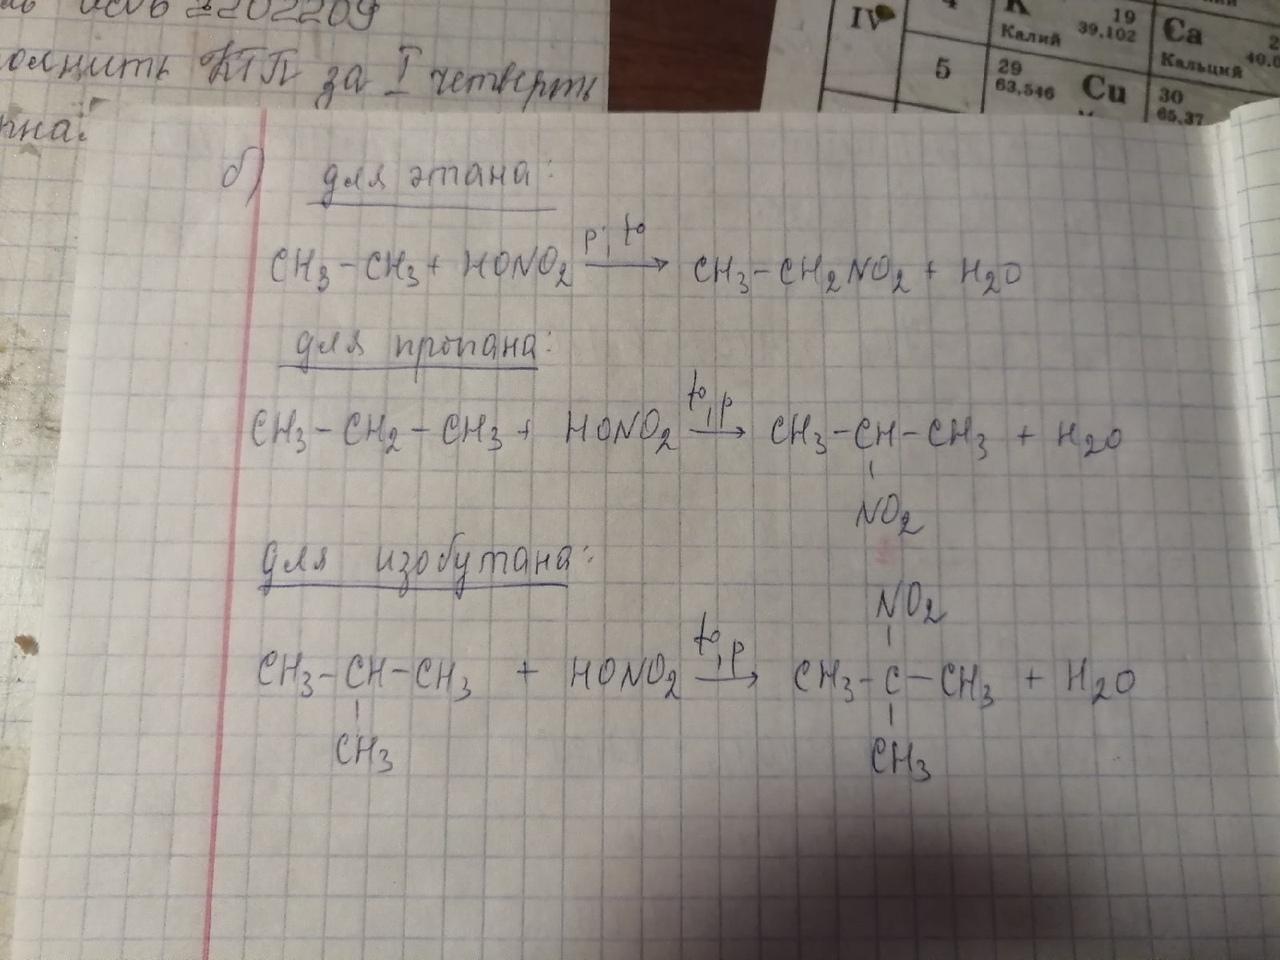 за I четверть
IV
4
K
19
39,102
Калий
Ca
Кальций
5
29
63,546
Cu
30
65,37
б) для этана:
CH3-CH3 + HONO2 p, t° → CH3-CH2NO2 + H2O
для пропана:
CH3-CH2-CH3 + HONO2 t°, p → CH3-CH-CH3 + H2O
NO2
для изобутана:
NO2
CH3-CH-CH3 + HONO2 t°, p → CH3-C-CH3 + H2O
CH3 CH3